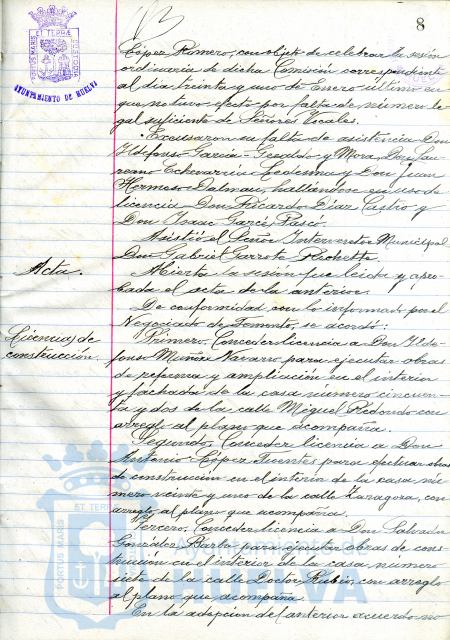 8
PORTUS MARIS ET TERRÆ CUSTODIA
AYUNTAMIENTO DE HUELVA
López Romero, con objeto de celebrar la sesión
ordinaria de dicha Comisión correspondiente
al día treinta y uno de Enero último en
que no tuvo efecto por falta de número le
gal suficiente de Señores Vocales.
Excusaron su falta de asistencia Don
Ildefonso García - y Mora, Don Lau
reano Echevarría Ledesma y Don Juan
Hermoso Dalmau, hallándose en uso de
licencia Don Ricardo Díaz Castro y
Don Isaac Garcés Pascé.
Asistió el Señor Interventor Municipal
Don Gabriel Garrote
Acta.
Abierta la sesión fue leída y apro
bada el acta de la anterior.
De conformidad con lo informado por el
Negociado de Fomento, se acordó:
Licencias de
construcción.
Primero. Conceder licencia a Don Ilde
fonso Muñoz Navarro para ejecutar obras
de reforma y ampliación en el interior
y fachada de la casa número cincuen
ta y dos de la calle Miguel Redondo con
arreglo al plano que acompaña.
Segundo. Conceder licencia a Don
Antonio López Fuentes para efectuar obras
de construcción en el interior de la casa nú
mero veinte y uno de la calle Zaragoza, con
arreglo al plano que acompaña.
Tercero. Conceder licencia a Don Salvador
González para ejecutar obras de cons
trucción en el interior de la casa número
siete de la calle Doctor Rubio, con arreglo
al plano que acompaña.
En la adopción del anterior acuerdo no
PORTUS MARIS ET TERRÆ
Ayuntamiento de
HUELVA